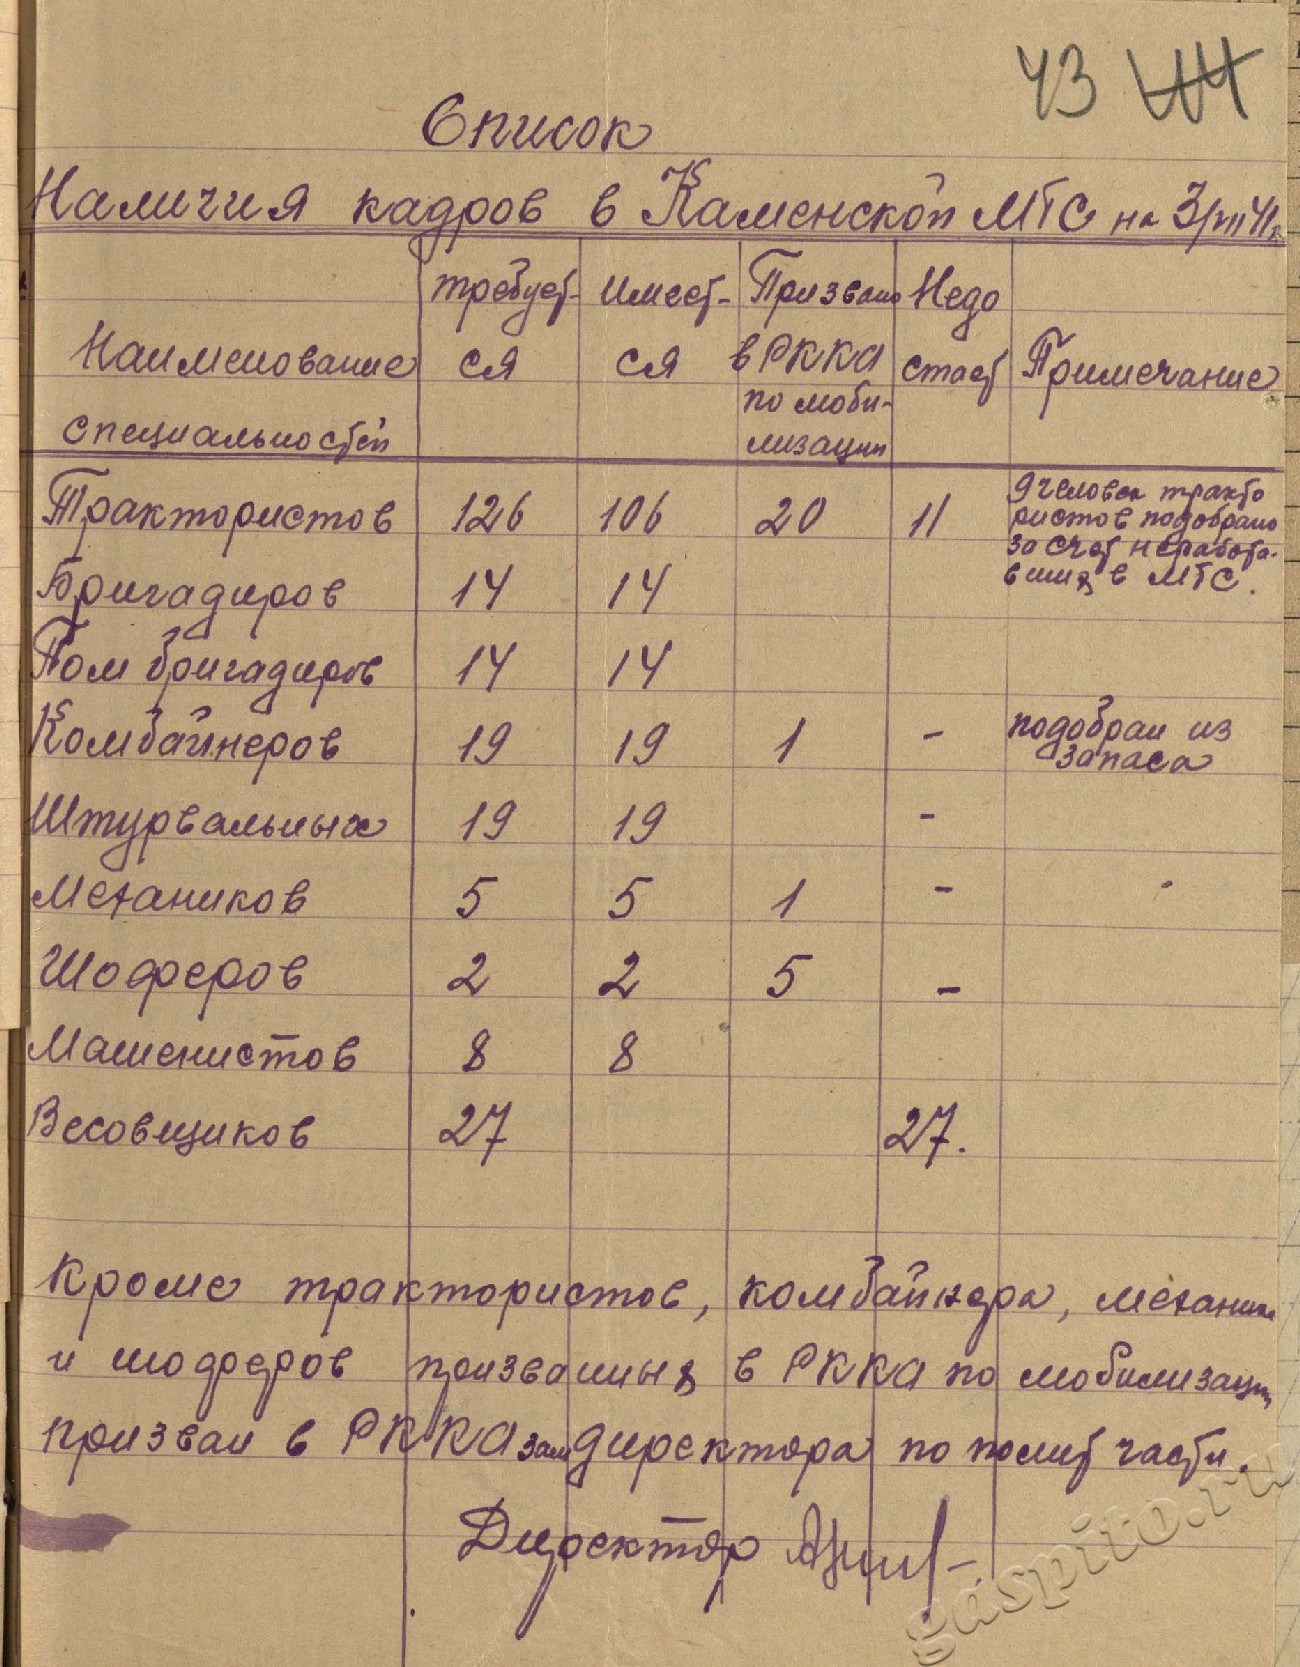 43
Список
Наличия кадров в Каменской МТС на 3/VII 41 г.
Наименование специальностей требует-ся имеет-ся Призвано в РККА по моби-лизации Недо стает Примечание
Трактористов 126 106 20 11 9 человек тракто
ристов подобрано
за счет неработа-
вших в МТС.
Бригадиров 14 14
Пом бригадиров 14 14
Комбайнеров 19 19 1 - подобран из
запаса
Штурвальных 19 19 -
Механиков 5 5 1 -
Шоферов 2 2 5 -
Машенистов 8 8
Весовщиков 27 27.
Кроме трактористов, комбайнера, механика
и шоферов призванных в РККА по мобилизации
призван в РККА зам директора по полит части.
Директор
gaspito.ru